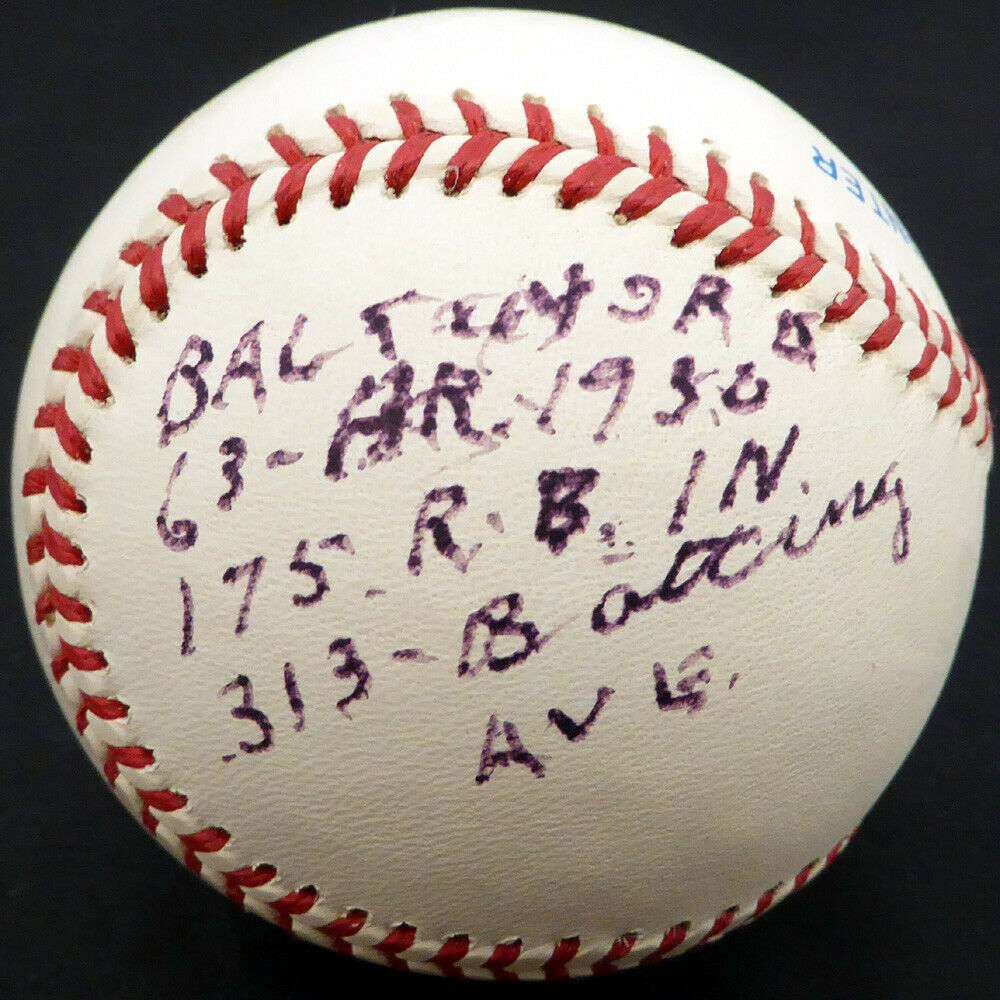 BALTIMORE
63-HR. 1930
175- R.B. IN.
.313-Batting
AVG.